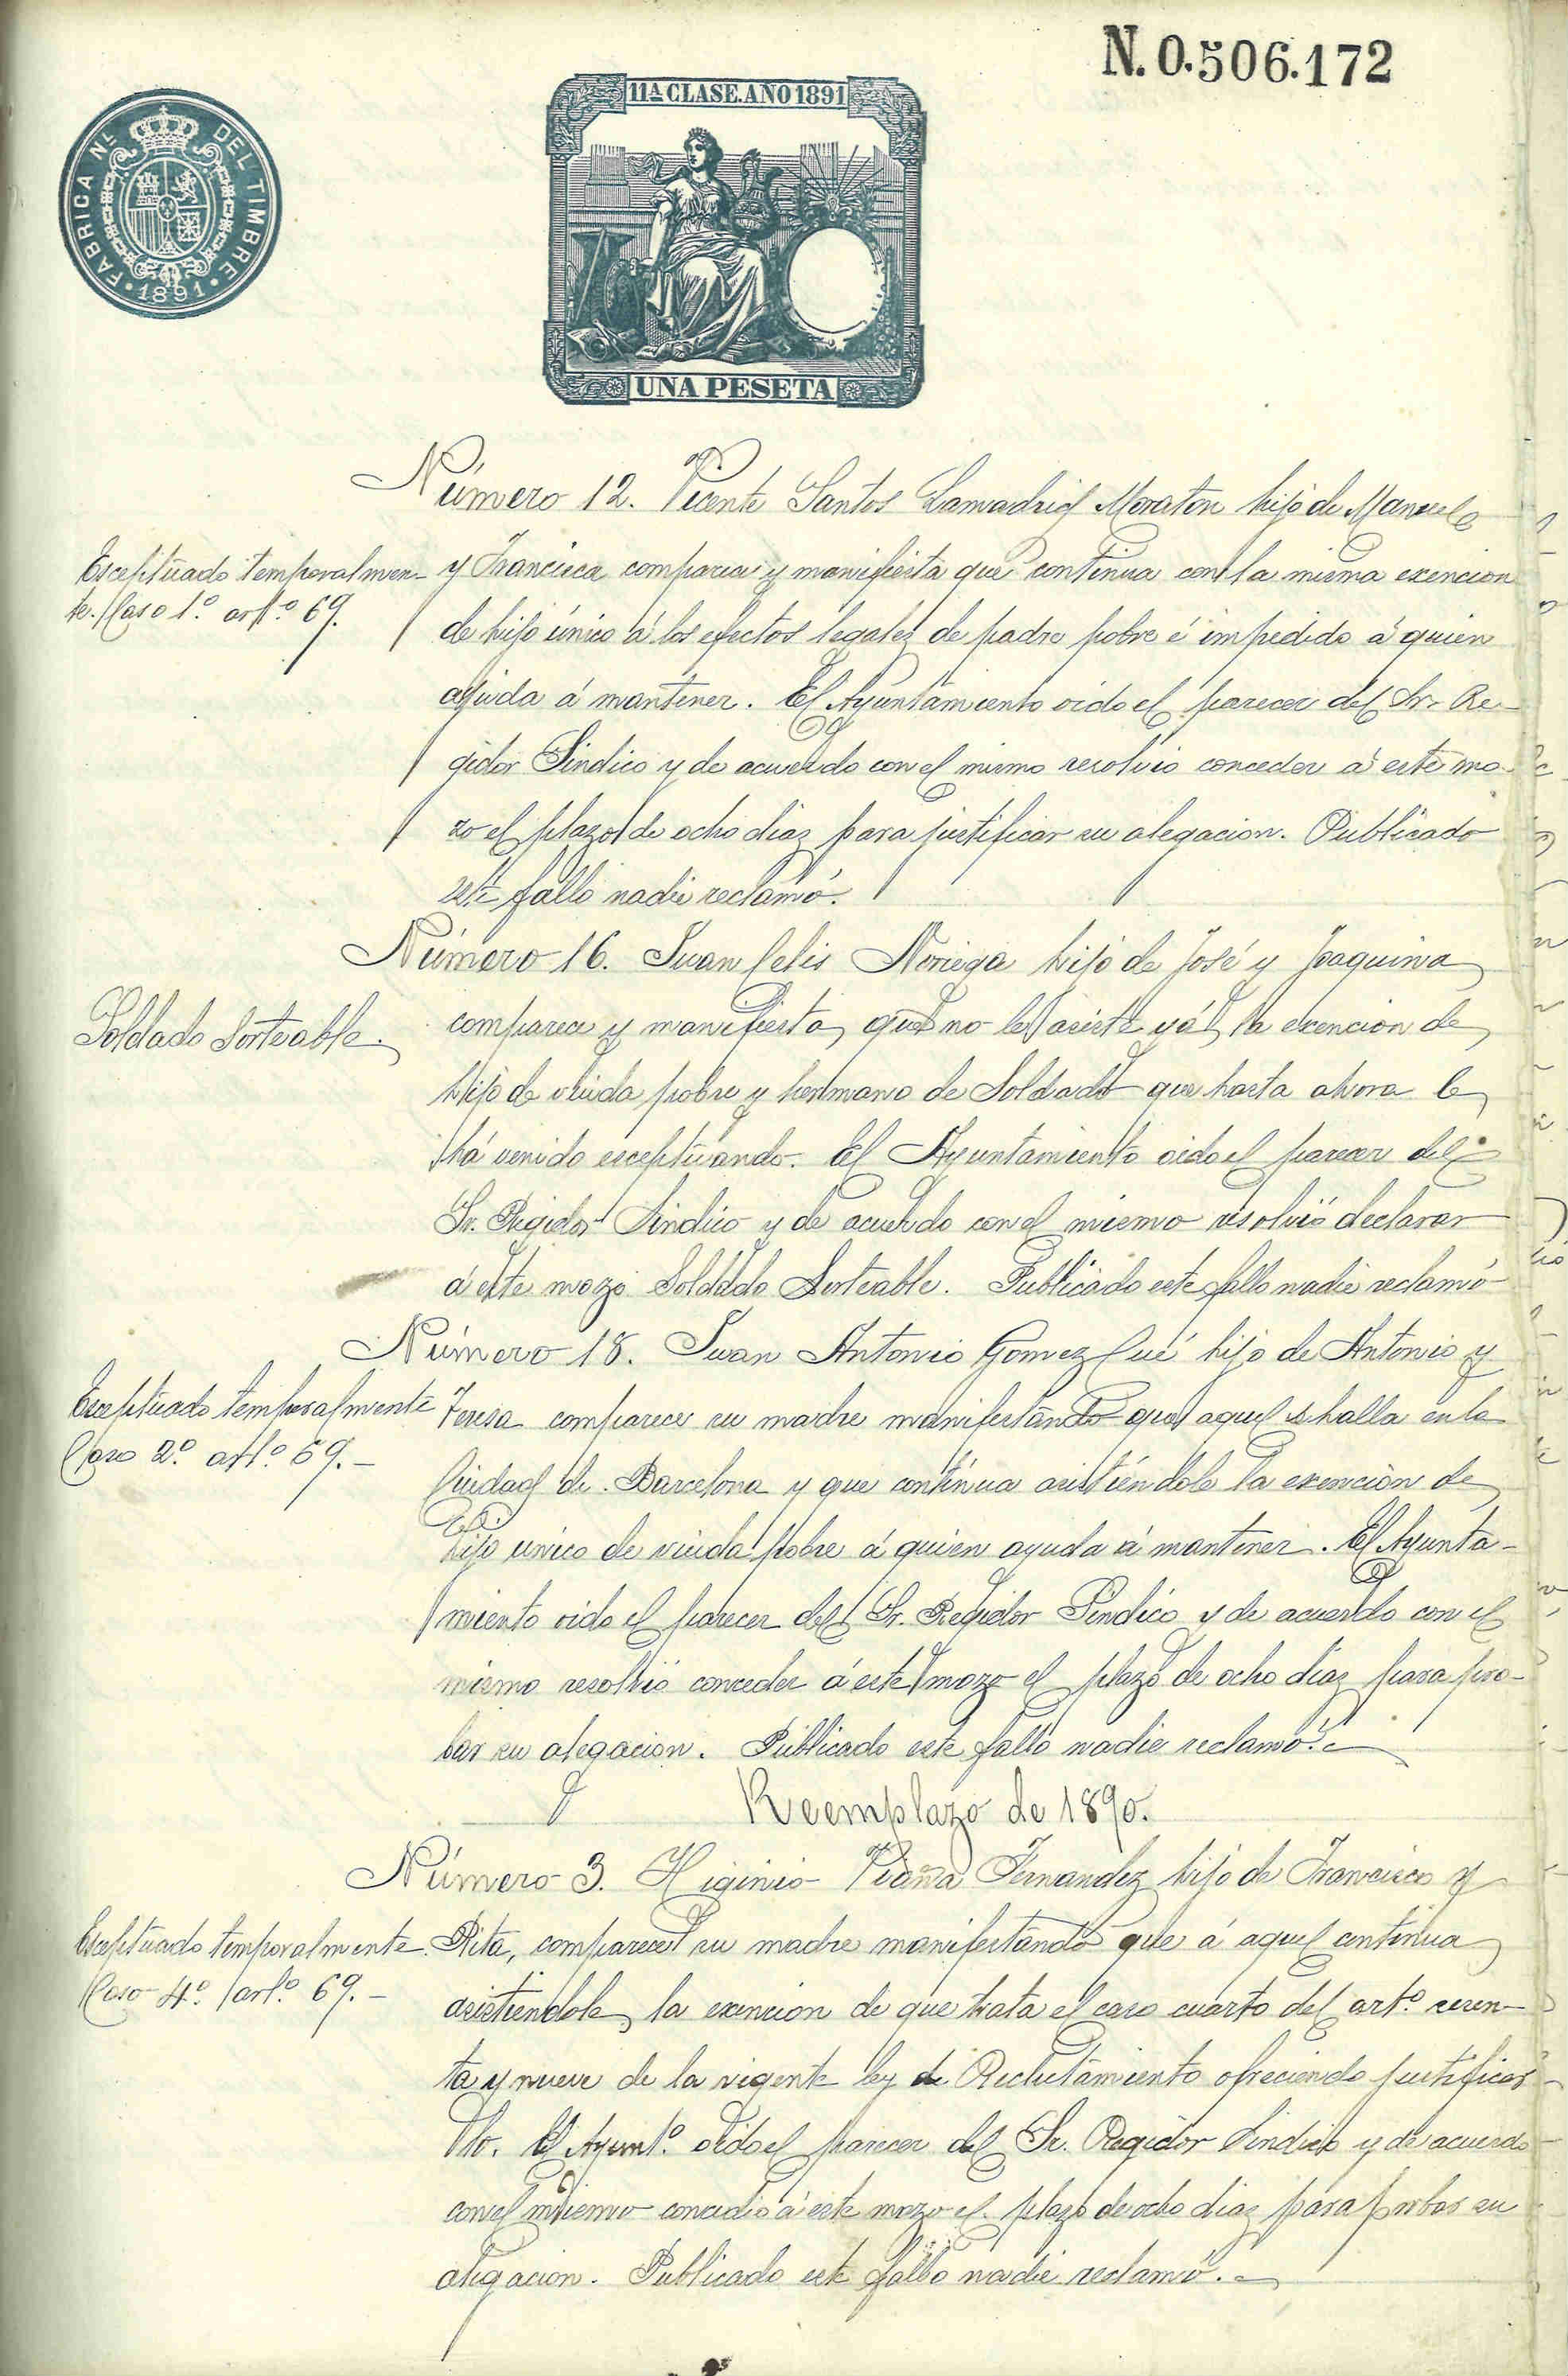 N. 0.506.172
FABRICA NL. DEL TIMBRE
1891
11A. CLASE. AÑO 1891
UNA PESETA
Número 12. Vicente Santos Lamadrid Moraton hijo de Manuel
Esceptuado temporalmen-
te. Caso 1.º art.º 69.
y Francisca comparece y manifiesta que continua con la misma exencion
de hijo único á los efectos legales de padre pobre é impedido á quien
ayuda á mantener. El Ayuntamiento oido el parecer del Sr. Re-
gidor Sindico y de acuerdo con el mismo resolvió conceder á este mo-
zo el plazo de ocho dias para justificar su alegacion. Publicado
este fallo nadie reclamó.
Número 16. Juan Celis Noriega hijo de José y Joaquina
Soldado Sorteable.
comparece y manifiesta que no le asiste yá la exencion de
hijo de viuda pobre y hermano de Soldado que hasta ahora le
há venido esceptuando. El Ayuntamiento oido el parecer del
Sr. Regidor Sindico y de acuerdo con el mismo resolvió declarar
á este mozo Soldado Sorteable. Publicado este fallo nadie reclamó
Número 18. Juan Antonio Gomez Cué hijo de Antonio y
Esceptuado temporalmente
Caso 2.º art.º 69.-
Teresa comparece su madre manifestando que aquel se halla en la
Ciudad de Barcelona y que continua asistiéndole la exención de
hijo único de viuda pobre á quien ayuda á mantener. El Ayunta-
miento oido el parecer del Sr. Regidor Sindico y de acuerdo con el
mismo resolvió conceder á este mozo el plazo de ocho dias para pro-
bar su alegacion. Publicado este fallo nadie reclamó.
Reemplazo de 1890.
Número 3. Higinio Viaña Fernandez hijo de Francisco y
Esceptuado temporalmente.
Caso 4.º art.º 69.-
Rita, comparece su madre manifestando que á aquel continua
asistiendole la exencion de que trata el caso cuarto del art.º sesen-
ta y nueve de la vigente ley de Reclutamiento ofreciendo justificar-
lo. El Ayunt.º oido el parecer del Sr. Regidor Sindico y de acuerdo
con el mismo concedió á este mozo el plazo de ocho dias para probar su
alegacion. Publicado este fallo nadie reclamó.